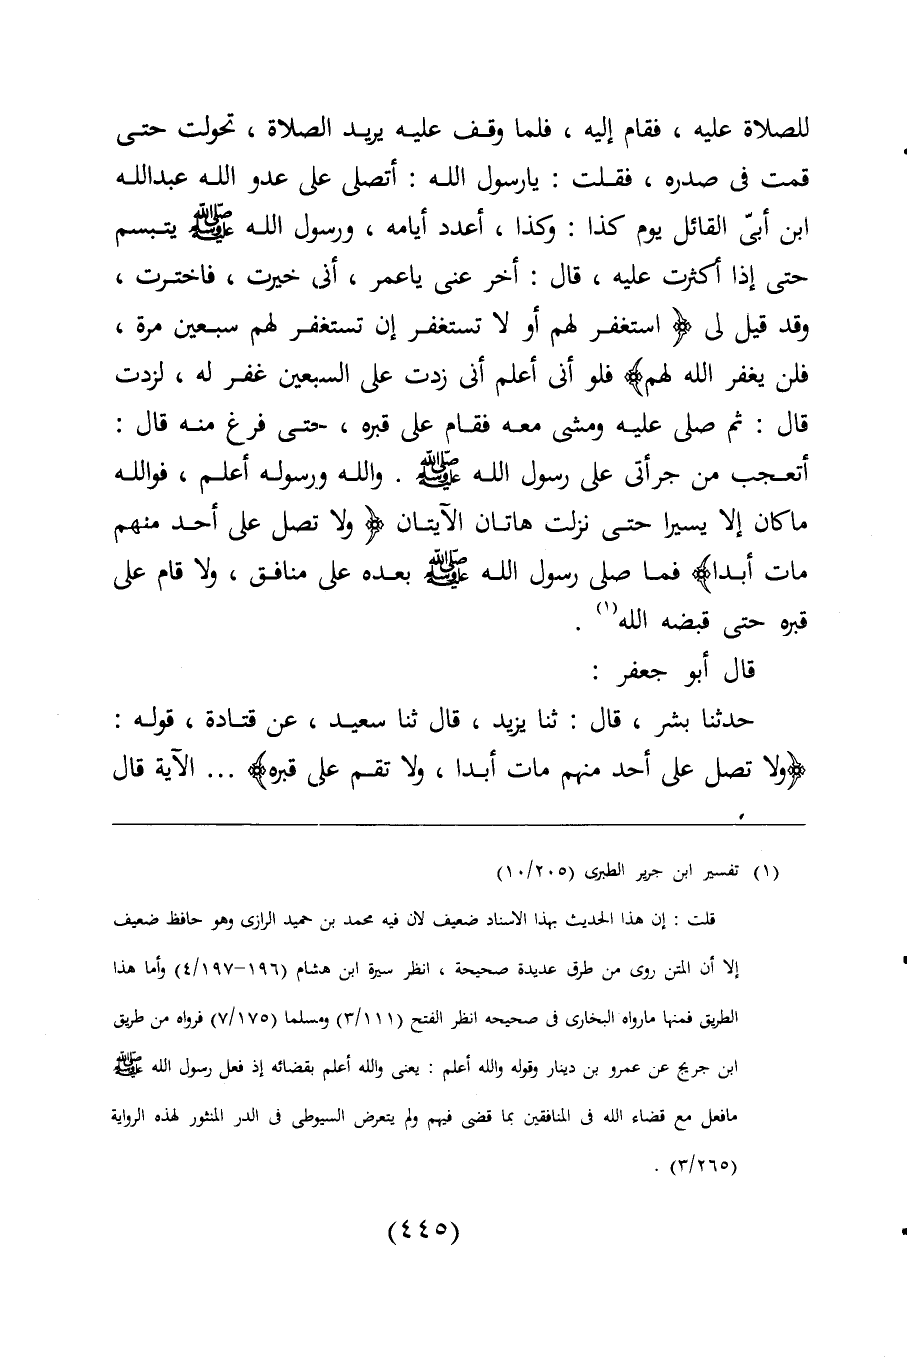 للصلاة عليه ، فقام إليه ، فلما وقف عليه يريد الصلاة ، تحولت حتى
قمت فى صدره ، فقلت : يارسول الله : أتصلى على عدو الله عبدالله
ابن أبىّ القائل يوم كذا : وكذا ، أعدد أيامه ، ورسول الله ﷺ يتبسم
حتى إذا أكثرت عليه ، قال : أخر عنى ياعمر ، أنى خيرت ، فاخترت ،
وقد قيل لى ﴿ استغفر لهم أو لا تستغفر إن تستغفر لهم سبعين مرة ،
فلن يغفر الله لهم﴾ فلو أنى أعلم أنى زدت على السبعين غفر له ، لزدت
قال : ثم صلى عليه ومشى معه فقام على قبره ، حتى فرغ منه قال :
أتعجب من جرأتى على رسول الله ﷺ . والله ورسوله أعلم ، فوالله
ماكان إلا يسيرا حتى نزلت هاتان الآيتان ﴿ ولا تصل على أحد منهم
مات أبدا﴾ فما صلى رسول الله ﷺ بعده على منافق ، ولا قام على
قبره حتى قبضه الله(١) .
قال أبو جعفر :
حدثنا بشر ، قال : ثنا يزيد ، قال ثنا سعيد ، عن قتادة ، قوله :
﴿ولا تصل على أحد منهم مات أبدا ، ولا تقم على قبره﴾ ... الآية قال
(١) تفسير ابن جرير الطبرى (١٠/٢٠٥)
قلت : إن هذا الحديث بهذا الاسناد ضعيف لان فيه محمد بن حميد الرازى وهو حافظ ضعيف
إلا أن المتن روى من طرق عديدة صحيحة ، انظر سيرة ابن هشام (٤/١٩٧-١٩٦) وأما هذا
الطريق فمنها مارواه البخارى فى صحيحه انظر الفتح (٣/١١١) ومسلما (٧/١٧٥) فرواه من طريق
ابن جريج عن عمرو بن دينار وقوله والله أعلم : يعنى والله أعلم بقضائه إذ فعل رسول الله ﷺ
مافعل مع قضاء الله فى المنافقين بما قضى فيهم ولم يتعرض السيوطى فى الدر المنثور لهذه الرواية
(٣/٢٦٥) .
(٤٤٥)